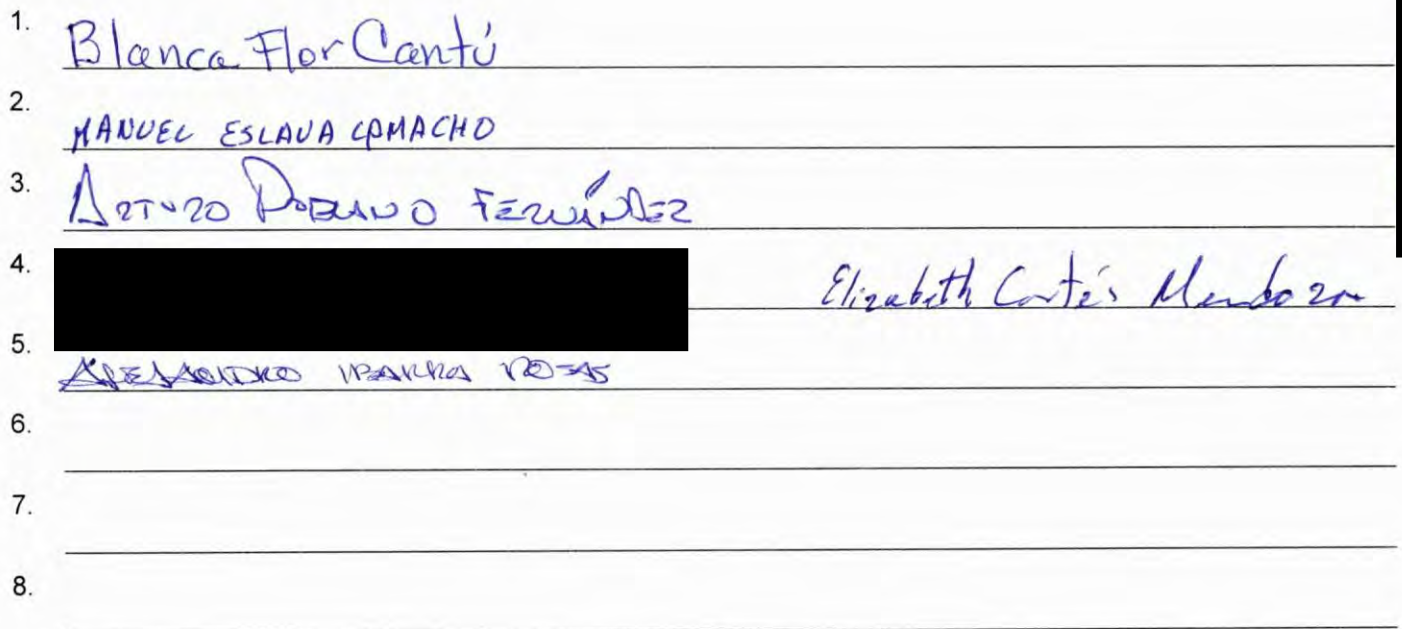 1. Blanca Flor Cantú
2. MANUEL ESLAVA CAMACHO
3. ARTURO POBLANO FERNÁNDEZ
4. Elizabeth Cortés Mendoza
5. ALEJANDRO IBARRA ROSAS
6.
7.
8.